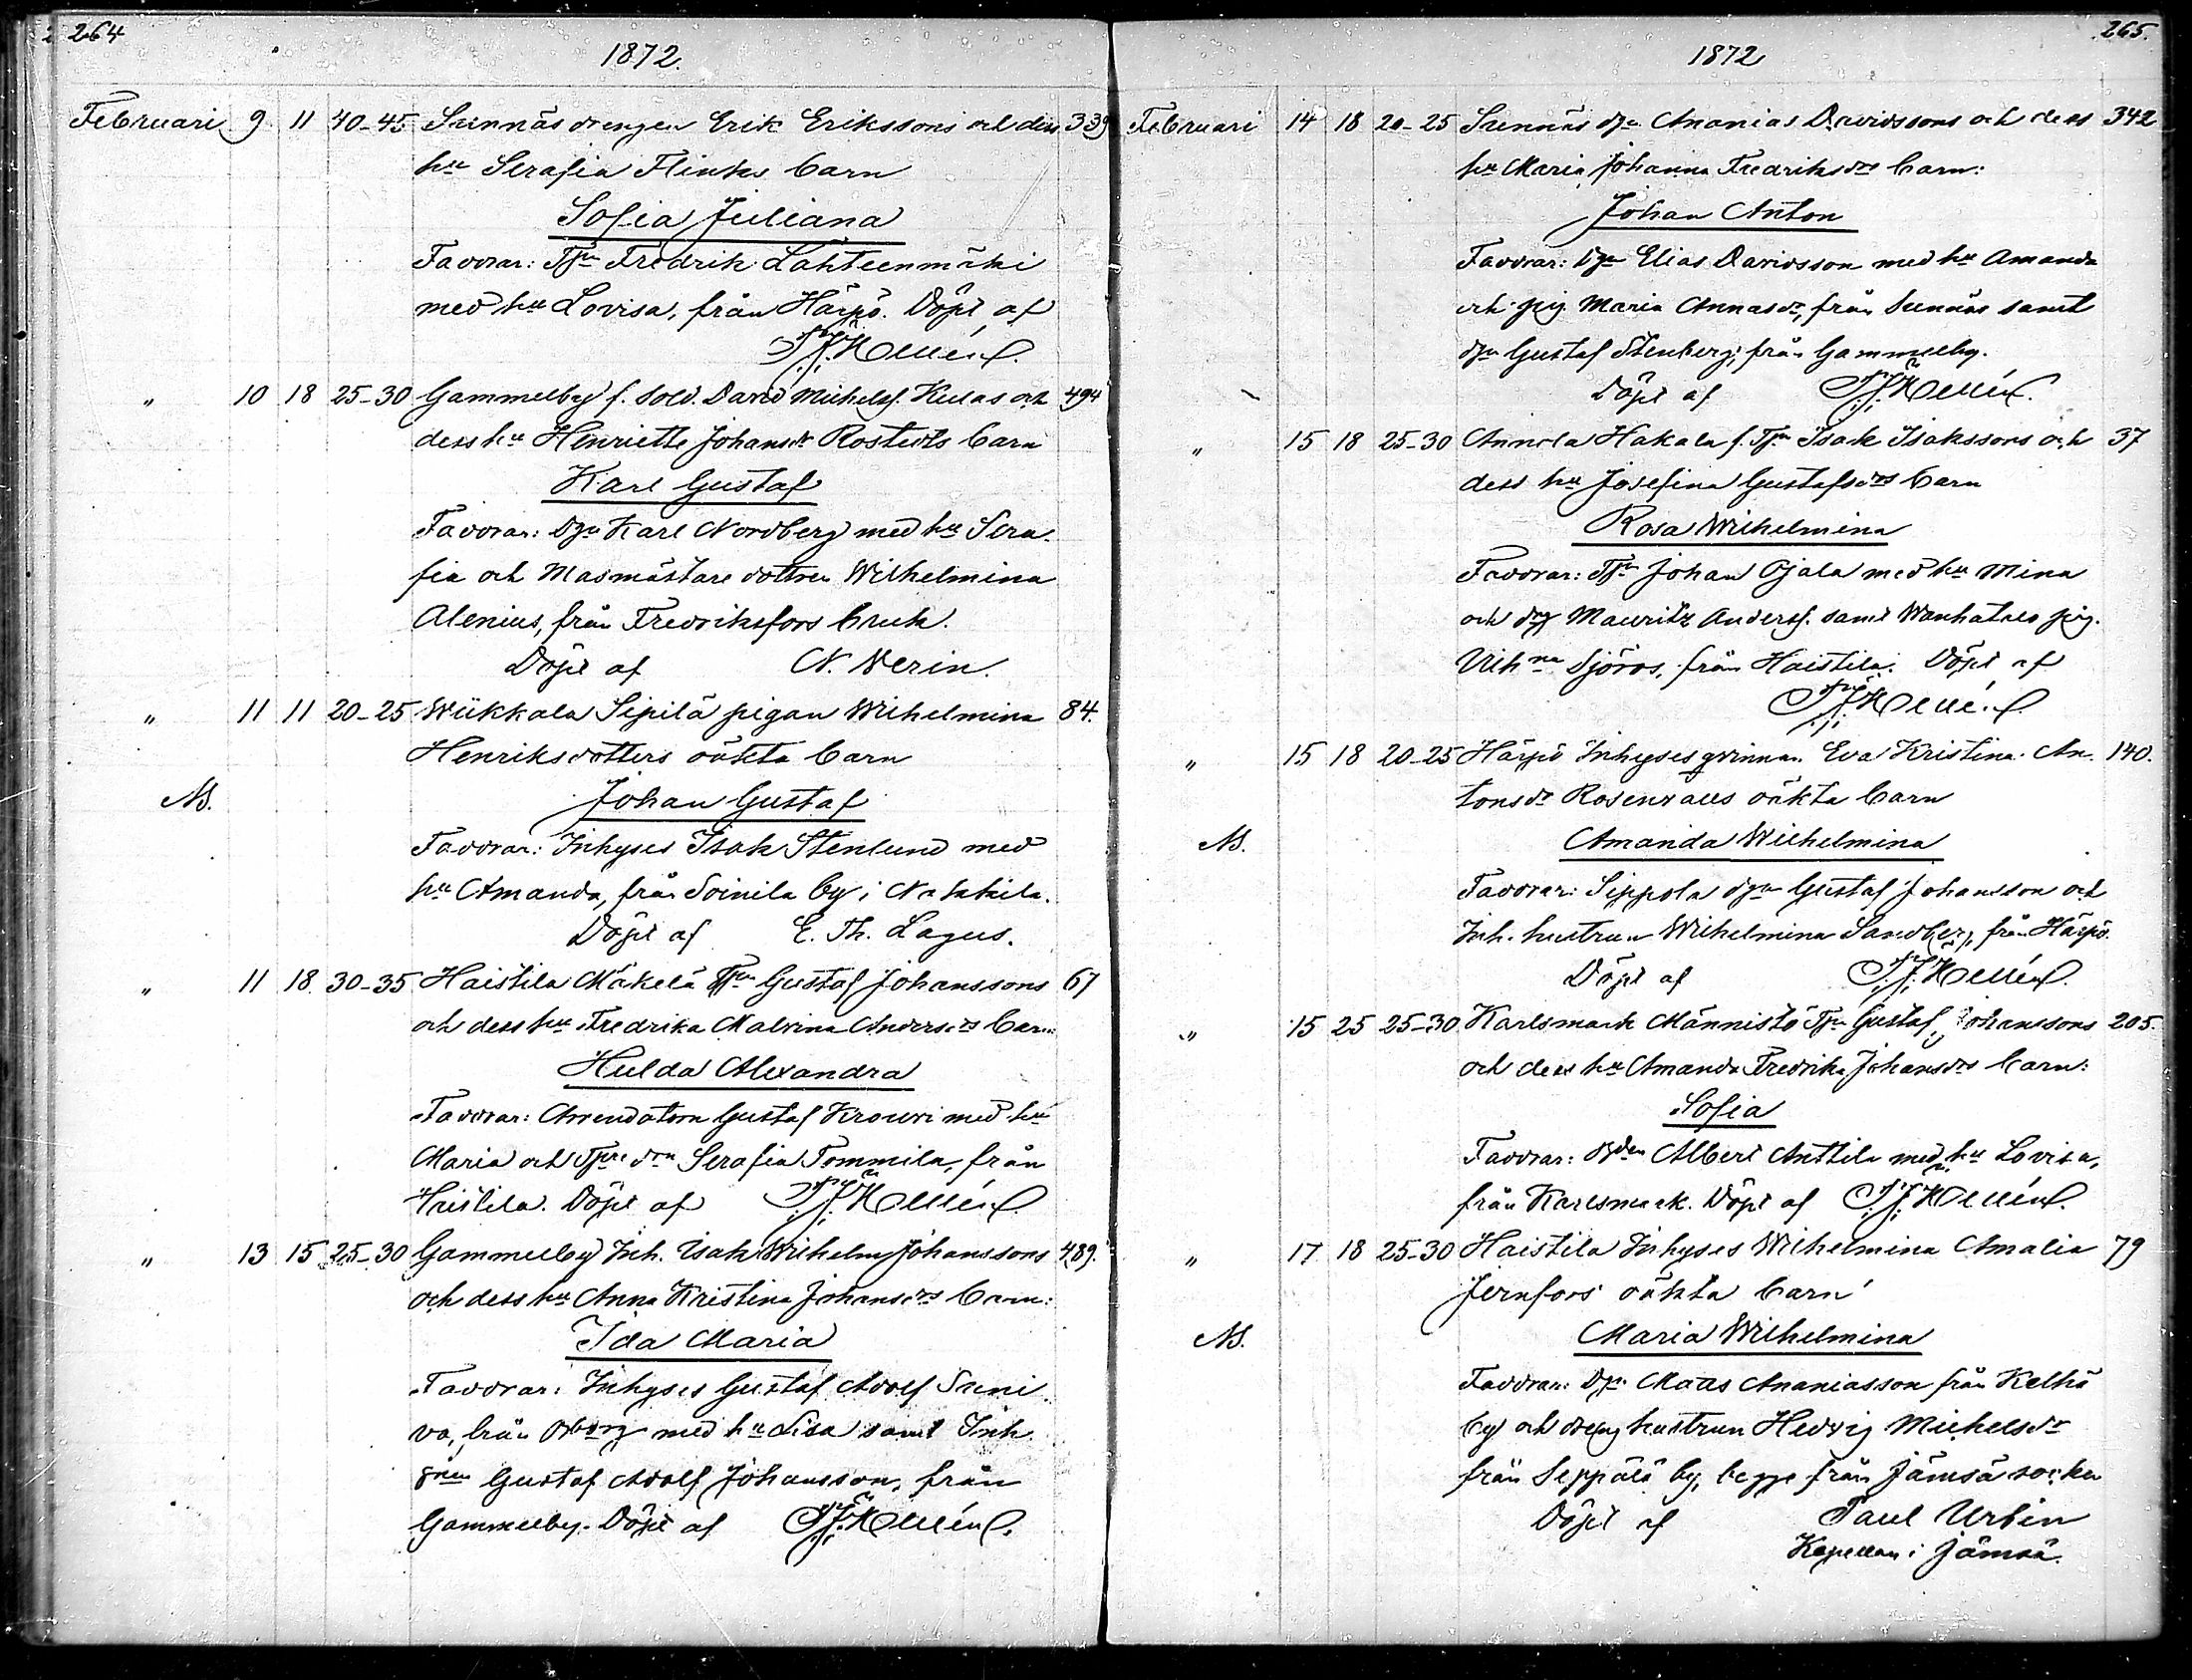 264
1872.
Februari 9 11 40-45 Sunnäs drengen Erik Erikssons och dess 339
hu Serafia Flinks barn
Sofia Juliana
Faddrar: Tpn Fredrik Lähteenmäki
med hu Lovisa, från Härpö. Döpt af
Hellén
" 10 18 25-30 Gammelby f. sold. David Michelss. Kulas och 494
dess hu Henriette Johansdr Rostedts barn
Karl Gustaf
Faddrar: Dgn Karl Nordberg med hu Sera-
fia och Masmästare dottren Wilhelmina
Alenius, från Fredriksfors bruk.
Döpt af N. Nerin.
" 11 11 20-25 Wiikkala Sipilä pigan Wilhelmina 84.
Henriksdotters oäkta barn
NB.
Johan Gustaf
Faddrar: Inhyses Isak Stenlund med
hu Amanda, från Soinila by i Nakkila.
Döpt af E. Th. Lagus.
" 11 18 30-35 Haistila Mäkelä Tpn Gustaf Johanssons 61
och dess hu Fredrika Malvina Andersdrs barn:
Hulda Alexandra
Faddrar: Arrendatorn Gustaf Krouvi med hu
Maria och Serafia Tommila, från
Haistila. Döpt af Hellén
" 13 15 25-30 Gammelby Inh. Isak Wilhelm Johanssons 489.
och dess hu Anna Kristina Johansdrs barn:
Ida Maria
Faddrar: Inhyses Gustaf Adolf Suni
va, från med hu Lisa samt Inh.
Gustaf Adolf Johansson, från
Gammelby. Döpt af Hellén.
265.
1872
Februari 14 18 20-25 Sunnäs dgn Ananias Davidssons och dess 342
hu Maria Johanna Fredriksdrs barn:
Johan Anton
Faddrar: Dgn Elias Davidsson med hu Amanda
och pig. Maria Annasdr, från Sunnäs samt
dgn Gustaf Stenberg, från Gammelby.
Döpt af Hellén.
" 15 18 25-30 Annola Hakala f. Tpn Isak Isakssons och 37
dess hu Josefina Gustafsdrs barn
Rosa Wilhelmina
Faddrar: Tpn Johan Ojala med hu Mina
och drg Mauritz Anderss. samt Wanhatalo pig.
Vilhna Sjöros, från Haistila. Döpt af
Hellén
" 15 18 20-25 Härpö Inhyses qvinnan Eva Kristina An- 140.
tonsdr Rosenvalls oäkta barn
NB.
Amanda Wilhelmina
Faddrar: Sippola dgn Gustaf Johansson och
Inh. hustrun Wilhelmina Sandberg, från Härpö.
Döpt af Hellén.
" 15 25 25-30 Karlsmark Männistö Tpn Gustaf Johanssons 205.
och dess hu Amanda Fredrika Johansdrs barn:
Sofia
Faddrar: Albert Anttila med hu Lovisa,
från Karlsmark. Döpt af Hellén.
" 17 18 25-30 Haistila Inhyses Wilhelmina Amalia 79
Jernfors oäkta barn
NB.
Maria Wilhelmina
Faddrar: Dgn Matts Ananiasson från Kelhä
by och dreng hustrun Hedvig Michelsdr
från Seppälä by, begge från Jämsä socken
Döpt af Paul Urbin
Kapellan i Jämsä.